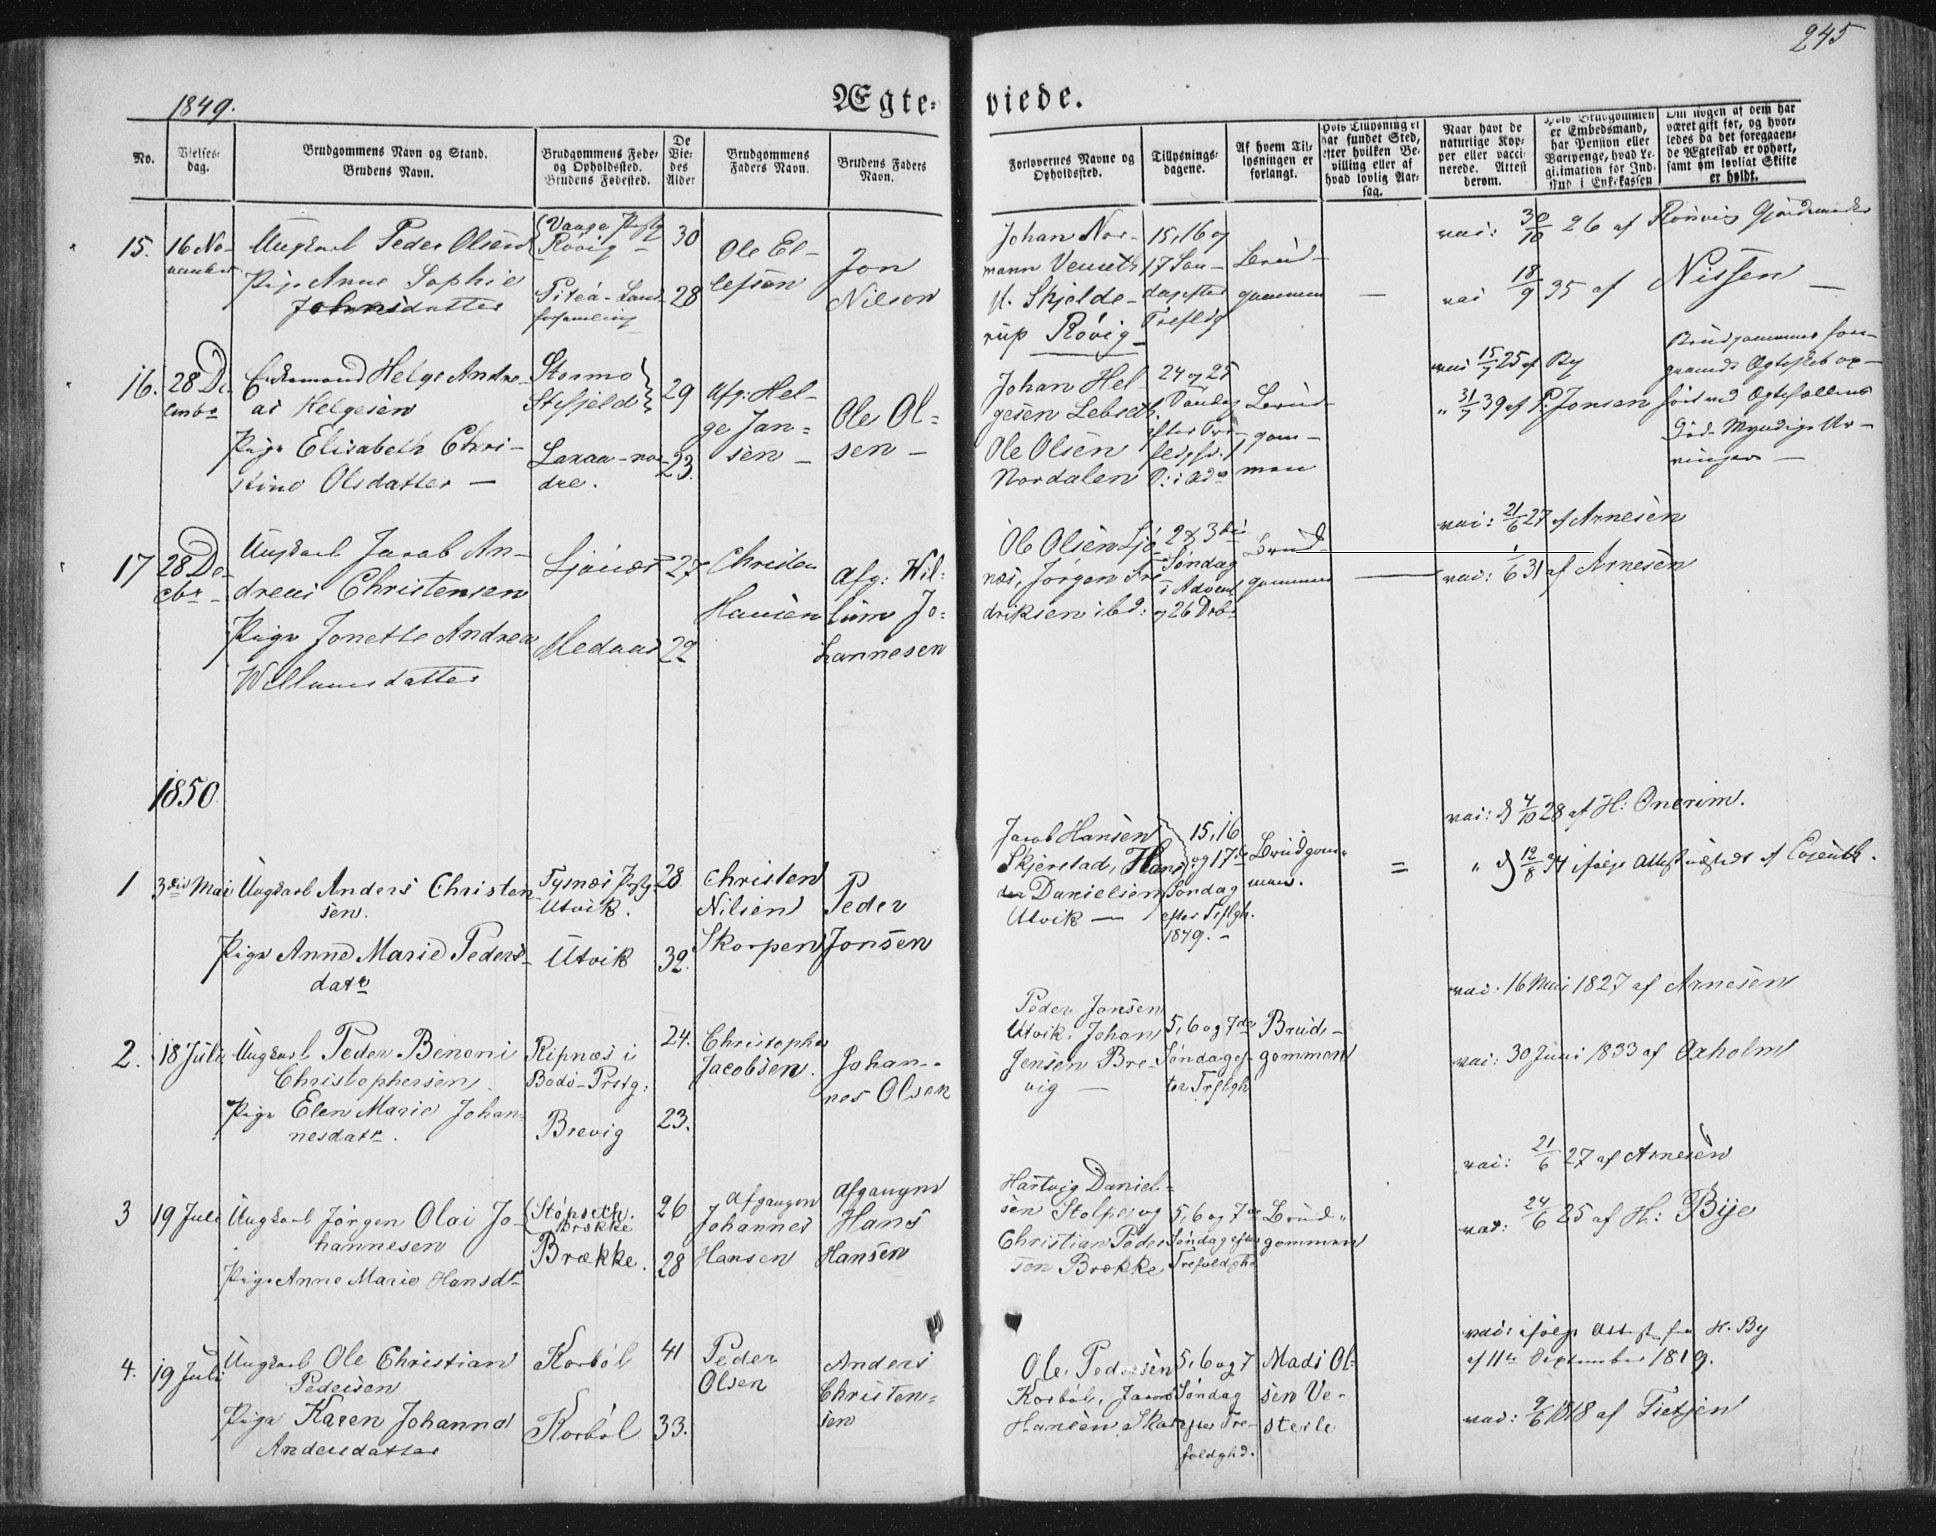 245
1849.
Ægte-
viede.
No.
Vielses-
dag.
Brudgommens Navn og Stand.
Brudens Navn.
Brudgommens Føde-
og Opholdssted.
Brudens Fødested.
De
Vie-
des
Alder
Brudgommens
Faders Navn.
Brudens Faders
Navn.
Forlovernes Navne og
Opholdssted.
Tillysnings-
dagene.
Af hvem Til-
lysningen er
forlangt.
Hvis Tillysning ei
har fundet Sted,
efter hvilken Be-
villing eller af
hvad lovlig Aar-
sag.
Naar havt de
naturlige Kop-
per eller vacci-
nerede. Attest
derom.
Hvis Brudgommen
er Embedsmand,
har Pension eller
Vartpenge, hvad Le-
gitimation for Ind-
skud i Enkekassen
Om nogen af dem har
været gift før, og hvor-
ledes da det foregaaen-
de Ægteskab er ophørt,
samt om lovligt Skifte
er holdt.
15.
16 No-
vember
Ungkarl Peder Olsen
Pige Anne Sophie
Johnsdatter
Rövig
Piteå-Land-
forsamling
30
28
Ole El-
lefsen
Jon
Nilson
Johan Nor-
mann
Skjelde-
rup Rövig
15, 16 og
17 Søn-
dag efter
Trefligh
Brud-
gommen
—
vac: 30/10 26 af
vac 18/9 35 af Nissen
16.
28 De-
cembr
Enkemand Helge Andre-
as Helgesen
Pige Elisabeth Chri-
stine Olsdatter —
Stormo
Stefjeld
Laxaa-nor-
dre.
29
23.
Afg: Hel-
ge Jan-
sen —
Ole Ol-
sen —
Johan Hel-
gesen
Ole Olsen
Nordalen
24 og 25
Søndag
efter Tre-
Brud-
gom-
men
vac 15/7 25 af By
" 31/7 39 af P. Jonsen
Brudgommens fore-
gaaende Ægteskab op-
hørt ved Ægtefællens
Død. Myndige Ar-
vinger —
17
28 De-
cbr -
Ungkarl Jacob An-
dreas Christensen
Pige Jonette Andrea
Willumsdatter
Sjönæs
Medaas
27
22
Christen
Hansen
Afg: Wil-
lum Jo-
hannesen
Ole Olsen Sjö-
næs, Jørgen Fre-
driksen ibd:
2 & 3die
Søndag
i Advent
og 26 Dcbr
Brud-
gommen
—
vac: 21/6 27 af Arnesen
vac: 1/6 31 af Arnesen
1850
1
3die Mai
Ungkarl Anders Christen
sen.
Pige Anne Marie Peders-
datr
Tysnæs Prstg:
Utvik.
Utvik
28
32.
Christen
Nilsen
Skorpen
Peder
Jonsen
Jacob Hansen
Skjerstad, Hans
Danielsen
Utvik —
15, 16
og 17de
Søndag
efter Treflgh.
1849. -
Brudgom-
men.
=
vac: d 4/10 28 af H: Onerim.
" d 12/8 24 ifølge Attest
2.
18 Juli
Ungkarl Peder Benoni
Christophersen
Pige Elen Marie Johan-
nesdatr.
Ripnæs i
Bodö-Prstg:
Brevig
24.
23.
Christopher
Jacobsen.
Johan-
nes Olsen
Peder Jonsen
Utvik. Johan
Jensen Bre-
vig —
5, 6 og 7de
Søndag ef-
ter Treflgh
Brud-
gommen
vac: 16 Mai 1827 af Arnesen
vac: 30 Juni 1833 af Oxholm
3
19 Juli
Ungkarl Jørgen Olai Jo-
hannesen
Pige Anne Marie Hansdtr
Brække
Brække.
26
28
Afgangen
Johannes
Hansen
Afgangne
Hans
Hansen
Hartvig Daniel-
sen Stolpe, og
Christian Peder-
sen Brække
5, 6 og 7de
Søndag efter
Trefoldgh
Brud-
gommen
vac: 21/6 27 af Arnesen
vac: 24/6 25 af H: Bye
4.
19 Juli
Ungkarl Ole Christian
Pedersen
Pige Karen Johanna
Andersdatter
Korböl
Korböl
41
33.
Peder
Olsen
Anders
Christen-
sen
Ole Pedersen
Korböl,
Hansen
5, 6 og 7
Søndag
efter Tre-
foldghd.
Mads Ol-
sen Ve-
steile
vac: ifølge Attest fra H. By
af 11te September 1819.
vac: 9/6 1818 af Tietjen